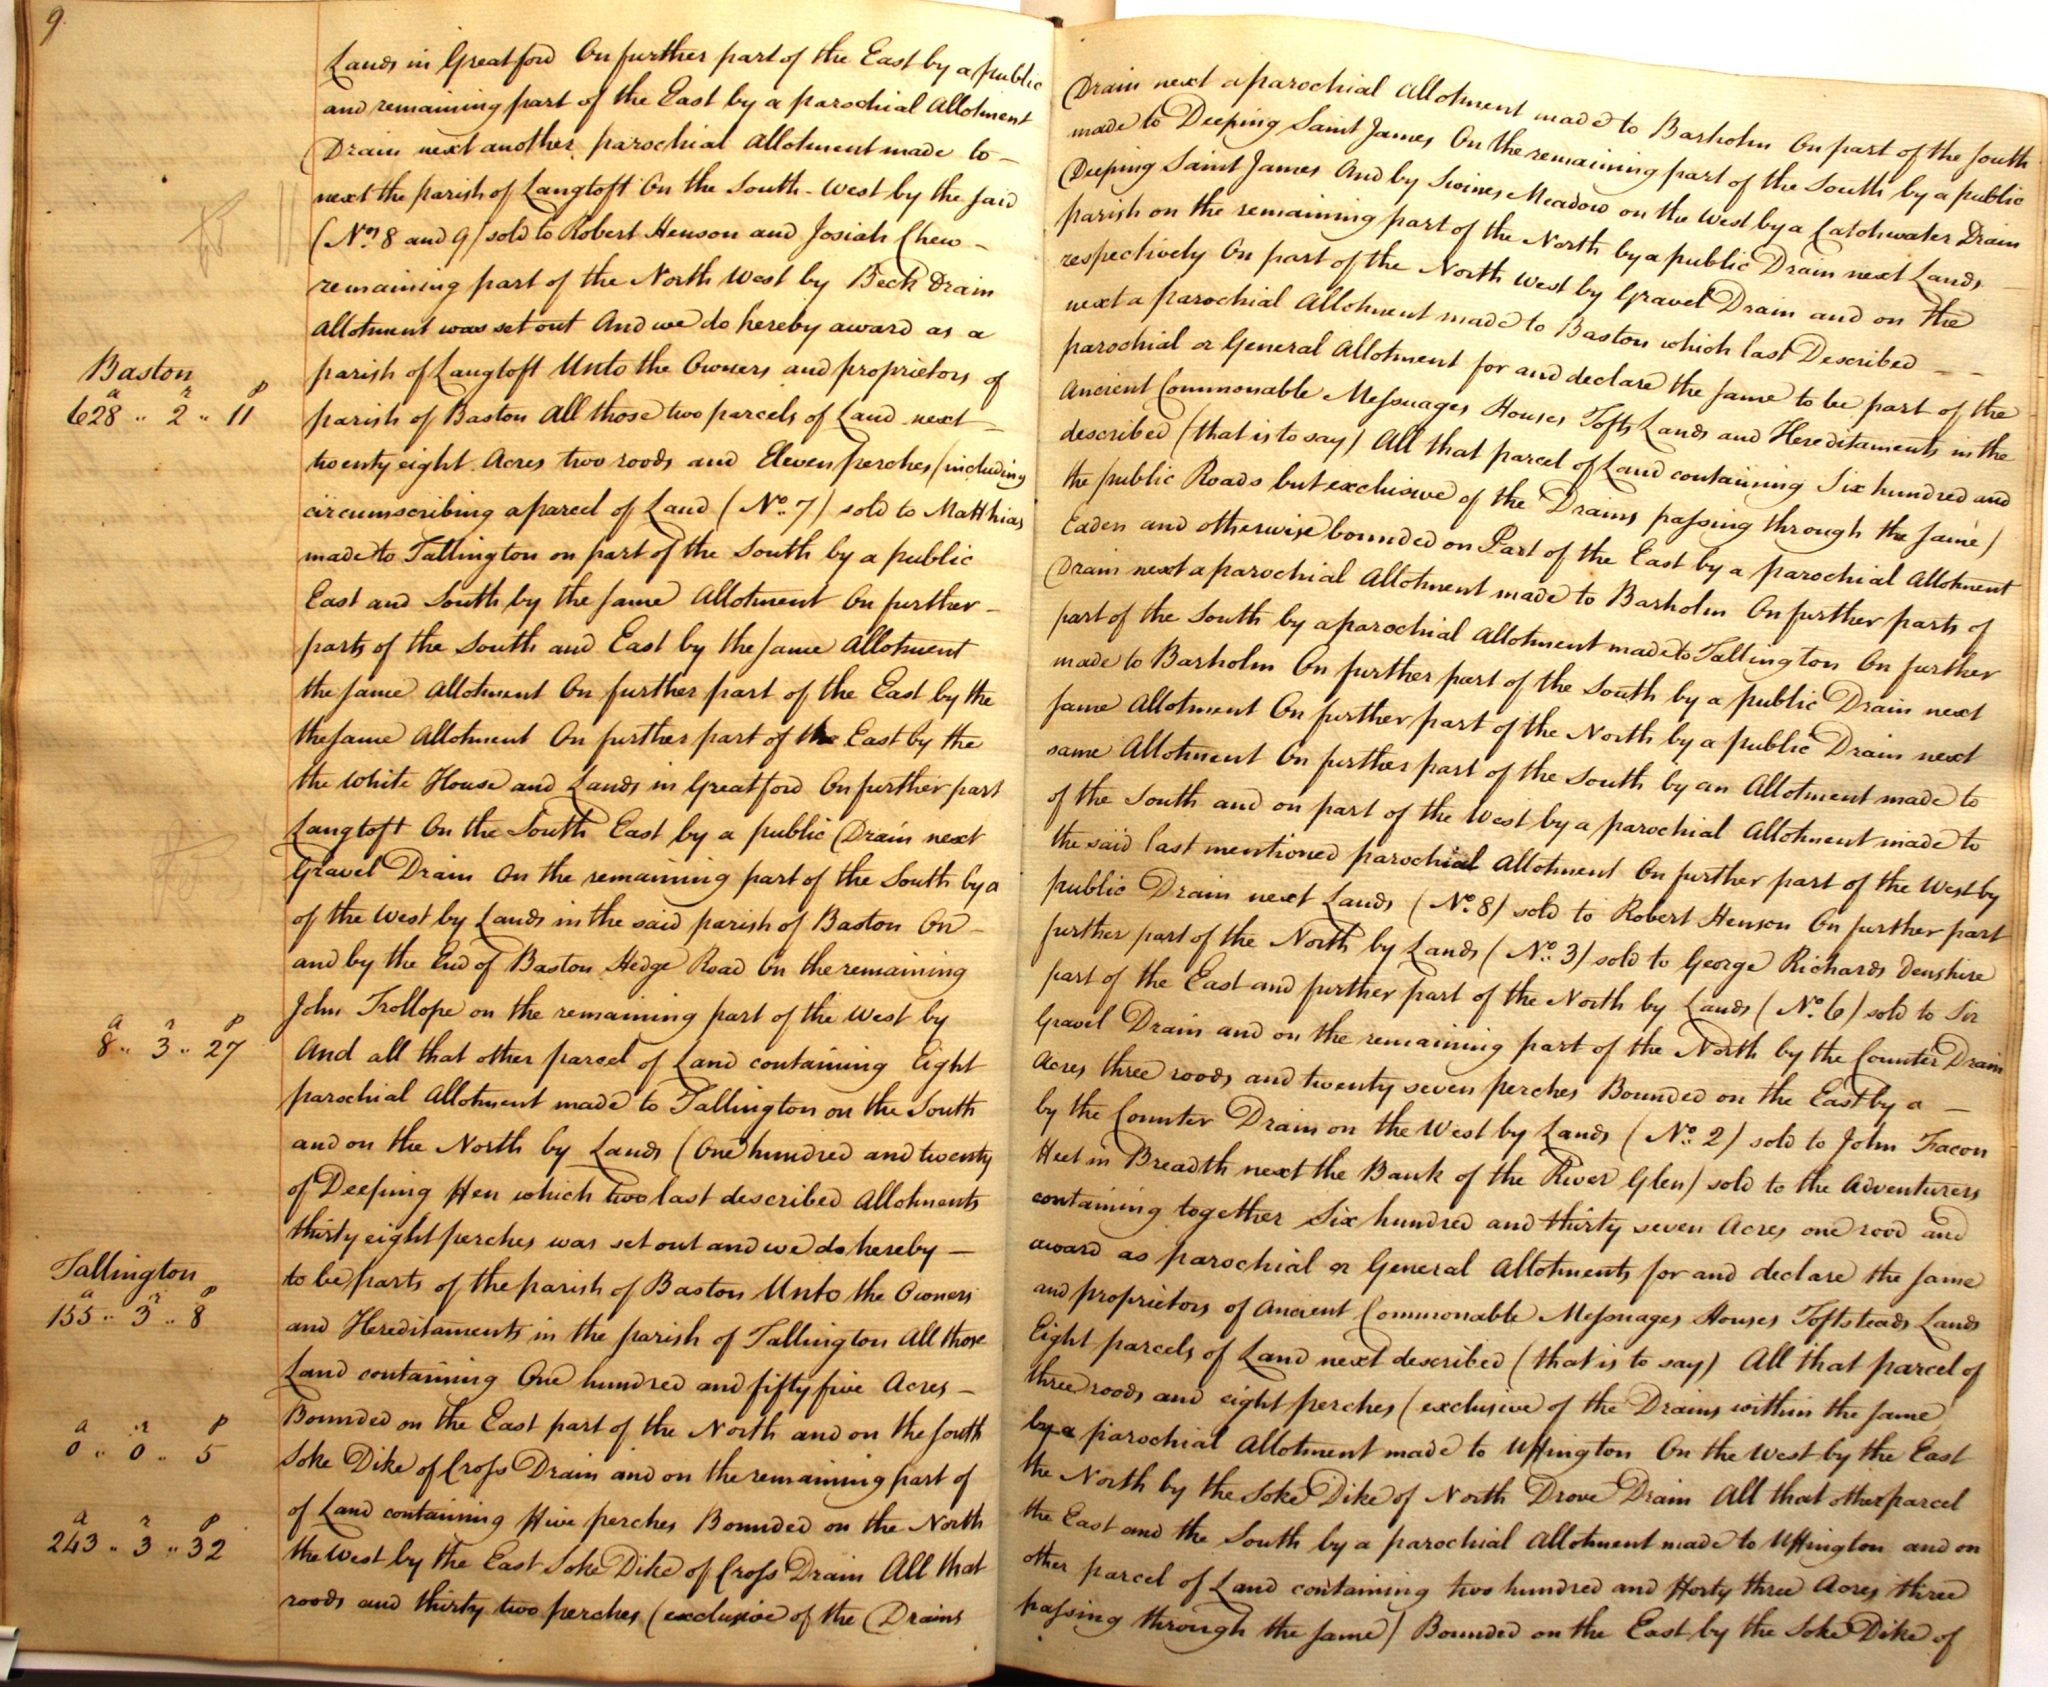 9.
Lands in Greatford On further part of the East by a public Drain next a parochial Allotment made to Barholm On part of the South
and remaining part of the East by a parochial Allotment made to Deeping Saint James On the remaining part of the South by a public
Drain next another parochial Allotment made to – Deeping Saint James And by Swines Meadow on the West by a Catchwater Drain
next the parish of Langtoft On the South-West by the said parish on the remaining part of the North by a public Drain next Lands –
(Nos. 8 and 9) sold to Robert Henson and Josiah Chew – respectively On part of the North West by Gravel Drain and on the
remaining part of the North West by Beck Drain next a parochial Allotment made to Baston which last Described – –
Allotment was set out And we do hereby award as a parochial or General Allotment for and declare the same to be part of the
Baston
parish of Langtoft Unto the Owners and proprietors of Ancient Commonable Messuages Houses Tofts Lands and Hereditaments in the
a r p
628 .. 2 .. 11
parish of Baston All those two parcels of Land next – described (that is to say) All that parcel of Land containing Six hundred and
twenty eight Acres two roods and Eleven perches (including the public Roads but exclusive of the Drains passing through the same)
circumscribing a parcel of Land (No. 7) sold to Matthias Eaden and otherwise bounded on Part of the East by a parochial Allotment
made to Tallington on part of the South by a public Drain next a parochial Allotment made to Barholm On further parts of
East and South by the same Allotment On further – part of the South by a parochial Allotment made to Tallington On further
parts of the South and East by the same Allotment made to Barholm On further part of the South by a public Drain next
the same Allotment On further part of the East by the same Allotment On further part of the North by a public Drain next
the same Allotment On further part of the East by the same Allotment On further part of the South by an Allotment made to
the White House and Lands in Greatford On further part of the South and on part of the West by a parochial Allotment made to
Langtoft On the South East by a public Drain next the said last mentioned parochial Allotment On further part of the West by
Gravel Drain On the remaining part of the South by a public Drain next Lands (No. 8) sold to Robert Henson On further part
of the West by Lands in the said parish of Baston On – further part of the North by Lands (No. 3) sold to George Richards Denshire
and by the End of Baston Hedge Road On the remaining part of the East and further part of the North by Lands (No. 6) sold to Sir
John Trollope on the remaining part of the West by Gravel Drain and on the remaining part of the North by the Counter Drain
a r p
8 .. 3 .. 27
And all that other parcel of Land containing Eight Acres three roods and twenty seven perches Bounded on the East by a –
parochial Allotment made to Tallington on the South by the Counter Drain on the West by Lands (No. 2) sold to John Facon
and on the North by Lands (One hundred and twenty Feet in Breadth next the Bank of the River Glen) sold to the Adventurers
of Deeping Fen which two last described Allotments containing together Six hundred and thirty seven Acres one rood and
thirty eight perches was set out and we do hereby – award as parochial or General Allotments for and declare the same
Tallington
to be parts of the parish of Baston Unto the Owners and proprietors of Ancient Commonable Messuages Houses Toftsteads Lands
a r p
155 .. 3 .. 8
and Hereditaments in the parish of Tallington All those Eight parcels of Land next described (that is to say) All that parcel of
Land containing One hundred and fifty five Acres – three roods and eight perches (exclusive of the Drains within the same
Bounded on the East part of the North and on the South by a parochial Allotment made to Uffington On the West by the East
a r p
0 .. 0 .. 5
Soke Dike of Cross Drain and on the remaining part of the North by the Soke Dike of North Drove Drain All that other parcel
of Land containing Five perches Bounded on the North the East and the South by a parochial Allotment made to Uffington and on
a r p
243 .. 3 .. 32
the West by the East Soke Dike of Cross Drain All that other parcel of Land containing two hundred and Forty three Acres three
roods and thirty two perches (exclusive of the Drains passing through the same) Bounded on the East by the Soke Dike of